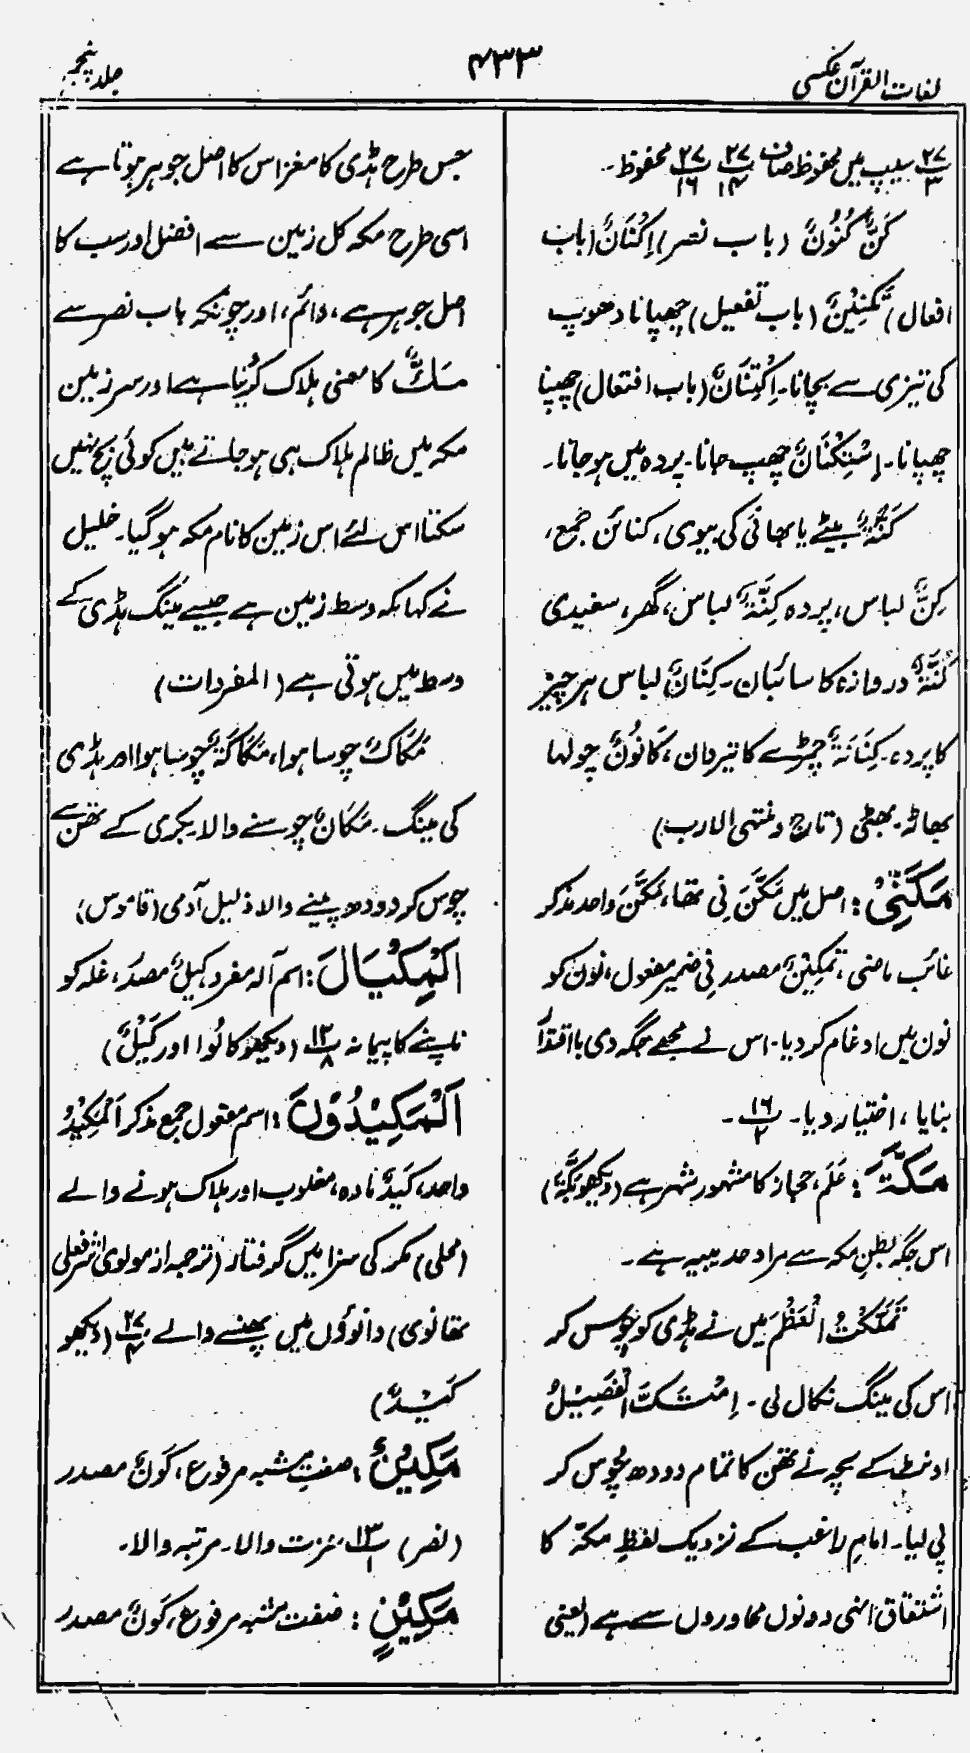 لغات القرآن عکسی
۴۳۳
جلد پنجم
۲۷/۳ سیپ میں محفوظ صاف ۲۷/۱۴ ۲۷/۱۶ محفوظ۔
کَنٌّ کُنُونٌ (باب نصر) اِکْنَانٌ (باب
افعال) تَکْنِیْنٌ (باب تفعیل) چھپانا دھوپ
کی تیزی سے بچانا۔ اِکْتِنَانٌ (باب افتعال) چھپنا
چھپانا۔ اِسْتِکْنَانٌ چھپ جانا۔ پردہ میں ہو جانا۔
کَنَّۃٌ بیٹے یا بھائی کی بیوی، کنائن جمع،
کِنٌّ لباس، پردہ کِنَّۃٌ لباس، گھر، سفیدی
کُنَّۃٌ دروازہ کا سائبان۔ کِنَانٌ لباس ہر چیز
کا پردہ۔ کِنَانَۃٌ چمڑے کا تیردان، کَانُونٌ چولہا
بھاڑ۔ بھٹی (تاج و منتہی الارب)
مَکَّنِّیْ : اصل میں مَکَّنَ نِی تھا، مَکَّنَ واحد مذکر
غائب ماضی، تَمْکِیْنٌ مصدر نِی ضمیر مفعول، نون کو
نون میں ادغام کر دیا۔ اس نے مجھے جگہ دی بااقتدار
بنایا، اختیار دیا۔ ۱۶/۲ ۔
مَکَّۃَ : عَلَم، حجاز کا مشہور شہر ہے (دیکھو بَکَّۃَ)
اس جگہ بطنِ مکہ سے مراد حدیبیہ ہے۔
تَمَکَّکْتُ الْعَظْمَ میں نے ہڈی کو چوس کر
اس کی مینگ نکال لی۔ اِمْتَکَّ الْفَصِیْلُ
اونٹ کے بچہ نے تھن کا تمام دودھ چوس کر
پی لیا۔ امام راغب کے نزدیک لفظِ مکہ کا
اشتقاق انہی دونوں محاوروں سے ہے (یعنی
جس طرح ہڈی کا مغز اس کا اصل جوہر ہوتا ہے
اسی طرح مکہ کل زمین سے افضل اور سب کا
اصل جوہر ہے، دائم، اور چونکہ باب نصر سے
مَکٌّ کا معنی ہلاک کرنا ہے اور سرزمین
مکہ میں ظالم ہلاک ہی ہو جاتے ہیں کوئی بچ نہیں
سکتا اس لئے اس زمین کا نام مکہ ہو گیا۔ خلیل
نے کہا کہ وسط زمین ہے جیسے مینگ ہڈی کے
وسط میں ہوتی ہے (المفردات)
مُکَاکٌ چوسا ہوا، مُکَاکَۃٌ چوسا ہوا اور ہڈی
کی مینگ۔ مَکَّانٌ چوسنے والا بکری کے تھن سے
چوس کر دودھ پینے والا ذلیل آدمی (قاموس)
اَلْمِکْیَالَ : اسم آلہ مفرد کَیْلٌ مصدر، غلہ کو
ناپنے کا پیمانہ ۱۲/۸ (دیکھو کَالُوا اور کَیْلٌ)
اَلْمَکِیْدُوْنَ : اسم مفعول جمع مذکر اَلْمَکِیْدُ
واحد، کَیْدٌ مادہ، مغلوب اور ہلاک ہونے والے
(محلی) مکر کی سزا میں گرفتار (ترجمہ از مولوی اشرفعلی
تھانوی) دانوؤں میں پھنسنے والے ۲۷/۴ (دیکھو
کَیْدٌ)
مَکِیْنٌ : صفتِ مشبہ مرفوع، کَوْنٌ مصدر
(نصر) ۱۳/۱ عزت والا۔ مرتبہ والا۔
مَکِیْنٍ : صفت مشبہ مرفوع، کَوْنٌ مصدر